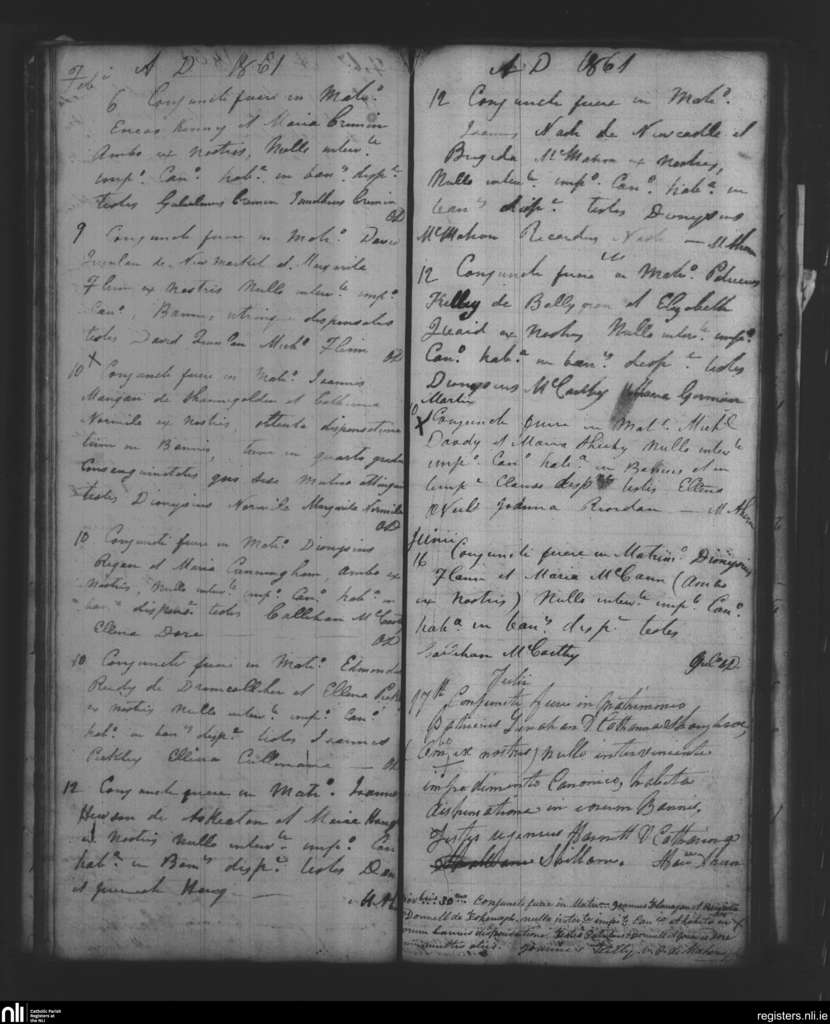 A D 1861
Feb
6 Conjuncti fuere in Mato.
Eneas Kenny et Maria Cremin
Ambo ex nostris, Nullo interte.
impo. Cano. haba. in bans. dispe.
testes Gulielmus Cremin Cremin
OD
9 Conjuncti fuere in Mato. David
Quinlan de Newmarket et Margarita
Flinn ex nostris Nullo interte. impo.
Cano. Bannis, utrinque dispensatis
testes David Quinlan Michl. Flinn
OD
10 X Conjuncti fuere in Mato. Joannis
Mangan de Shannagolden et Catherina
Normile ex nostris obtenta dispensatione
tum in Bannis, tum in quarto gradu
Consanguinitatis quo sese mutuo attingunt
testes Dionysius Normile Margarita Normile
OD
10 Conjuncti fuere in Mato. Dionysius
Regan et Maria Cunningham, Ambo ex
nostris, Nullo interte. impo. Cano. haba. in
bans. dispe. testes Callahan McCarthy
Ellena Dore
OD
10 Conjuncti fuere in Mato. Edmondus
Reidy de Dromcolliher et Ellena
ex nostris nullo interte. impo. Cano.
haba. in bans. dispe. testes Joannes
Ellena Cullinane
12 Conjuncti fuere in Mato. Joannes
Hewson de Askeaton et Maria
ex Nostris nullo interte. impo. Cano.
haba. in Bans. dispe. testes
et
M.A
A D 1861
12 Conjuncti fuere in Mato.
Joannes Nash de Newcastle et
Brigida McMahon ex nostris,
Nullo interte. impo. Cano. haba. in
bans. dispe. testes Dionysius
McMahon Ricardus Nash — M Ahern
12 Conjuncti fuere in Mato. Patricius
Kelly de Ballygran et Elizabeth
Quaid ex nostris Nullo interte. impo.
Cano. haba. in bans. dispe. testes
Dionysius McCarthy Maria Gorman
Martii
X Conjuncti fuere in Mato. Michl.
Dandy et Maria Sheehy nullo interte.
impo. Cano. haba. in Bannis et in
tempe. Clauso dispe. testes Ellena
O'Neil Joanna Riordan — M Ahern
Junii
16 Conjuncti fuere in Matrimo. Dionysius
Flann et Maria McCann (Ambo
ex nostris) Nullo interte. impo. Cano.
haba. in bans. dispe. testes
Callahan McCarthy
Julii
17th Conjuncti fuere in Matrimonio
Patricius Linahan & Catharina Shaughnessy,
(Ambo ex nostris) nullo interveniente
impedimento Canonico, habita
dispensatione in eorum Bannis.
Testes Eugenius Harnett & Catharina
Shillane.
30 Conjuncti fuere in Matrio. Joannes Flanagan et Brigida
O'Donnell de nullo interte. impo. Canco. et habita in
eorum bannis dispensatione. Testes
Joannes Kelly
nli
Catholic Parish
Registers at
the NLI
registers.nli.ie